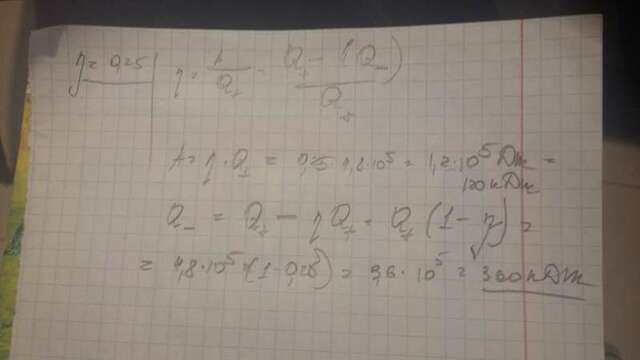 η = 0,25 η = A/Q₊ = Q₊ - |Q₋|/Q₊
A = η · Q₊ = 0,25 · 4,8 · 10⁵ = 1,2 · 10⁵ Дж =
120 кДж
Q₋ = Q₊ - ηQ₊ = Q₊ (1 - η) =
= 4,8 · 10⁵ · (1 - 0,25) = 3,6 · 10⁵ = 360 кДж